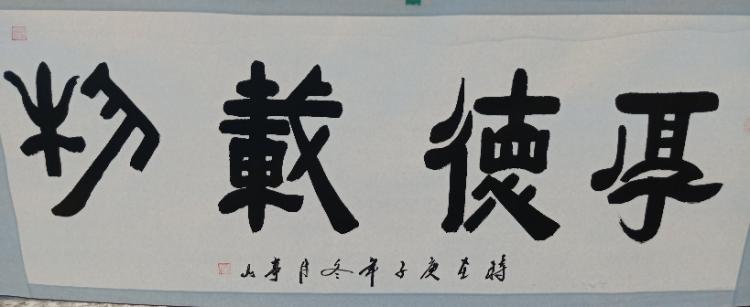 厚德載物
時在庚子年冬月山